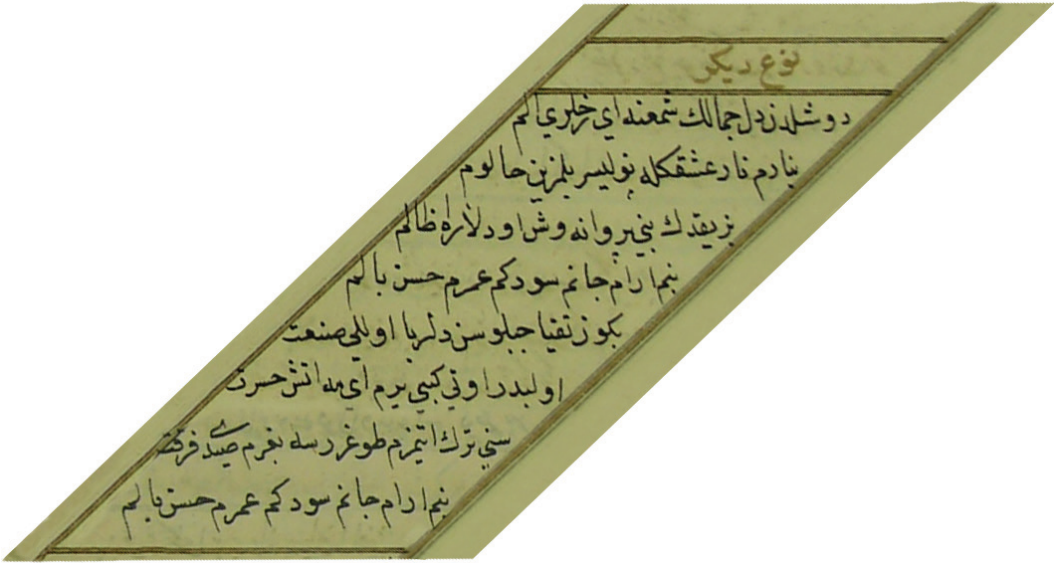 نوع ديكر
دوشلدن دل جمالك شمعنه اي خرلري الم
نيا رم نار عشقكله نوليسر يلمزين حالوم
بزيقدك بني پروانه وش اودلاره ظالم
بنم ارام جانم سودكم عمرم حسن بالم
بكون تقيا جبلوسن دلربا اوللي صنعت
اولبدر اوتي كبي يرم اي مه اتش حسرت
سني ترك اتيمزم طوغررسه بغرم فرقت
بنم ارام جانم سودكم عمرم حسن بالم